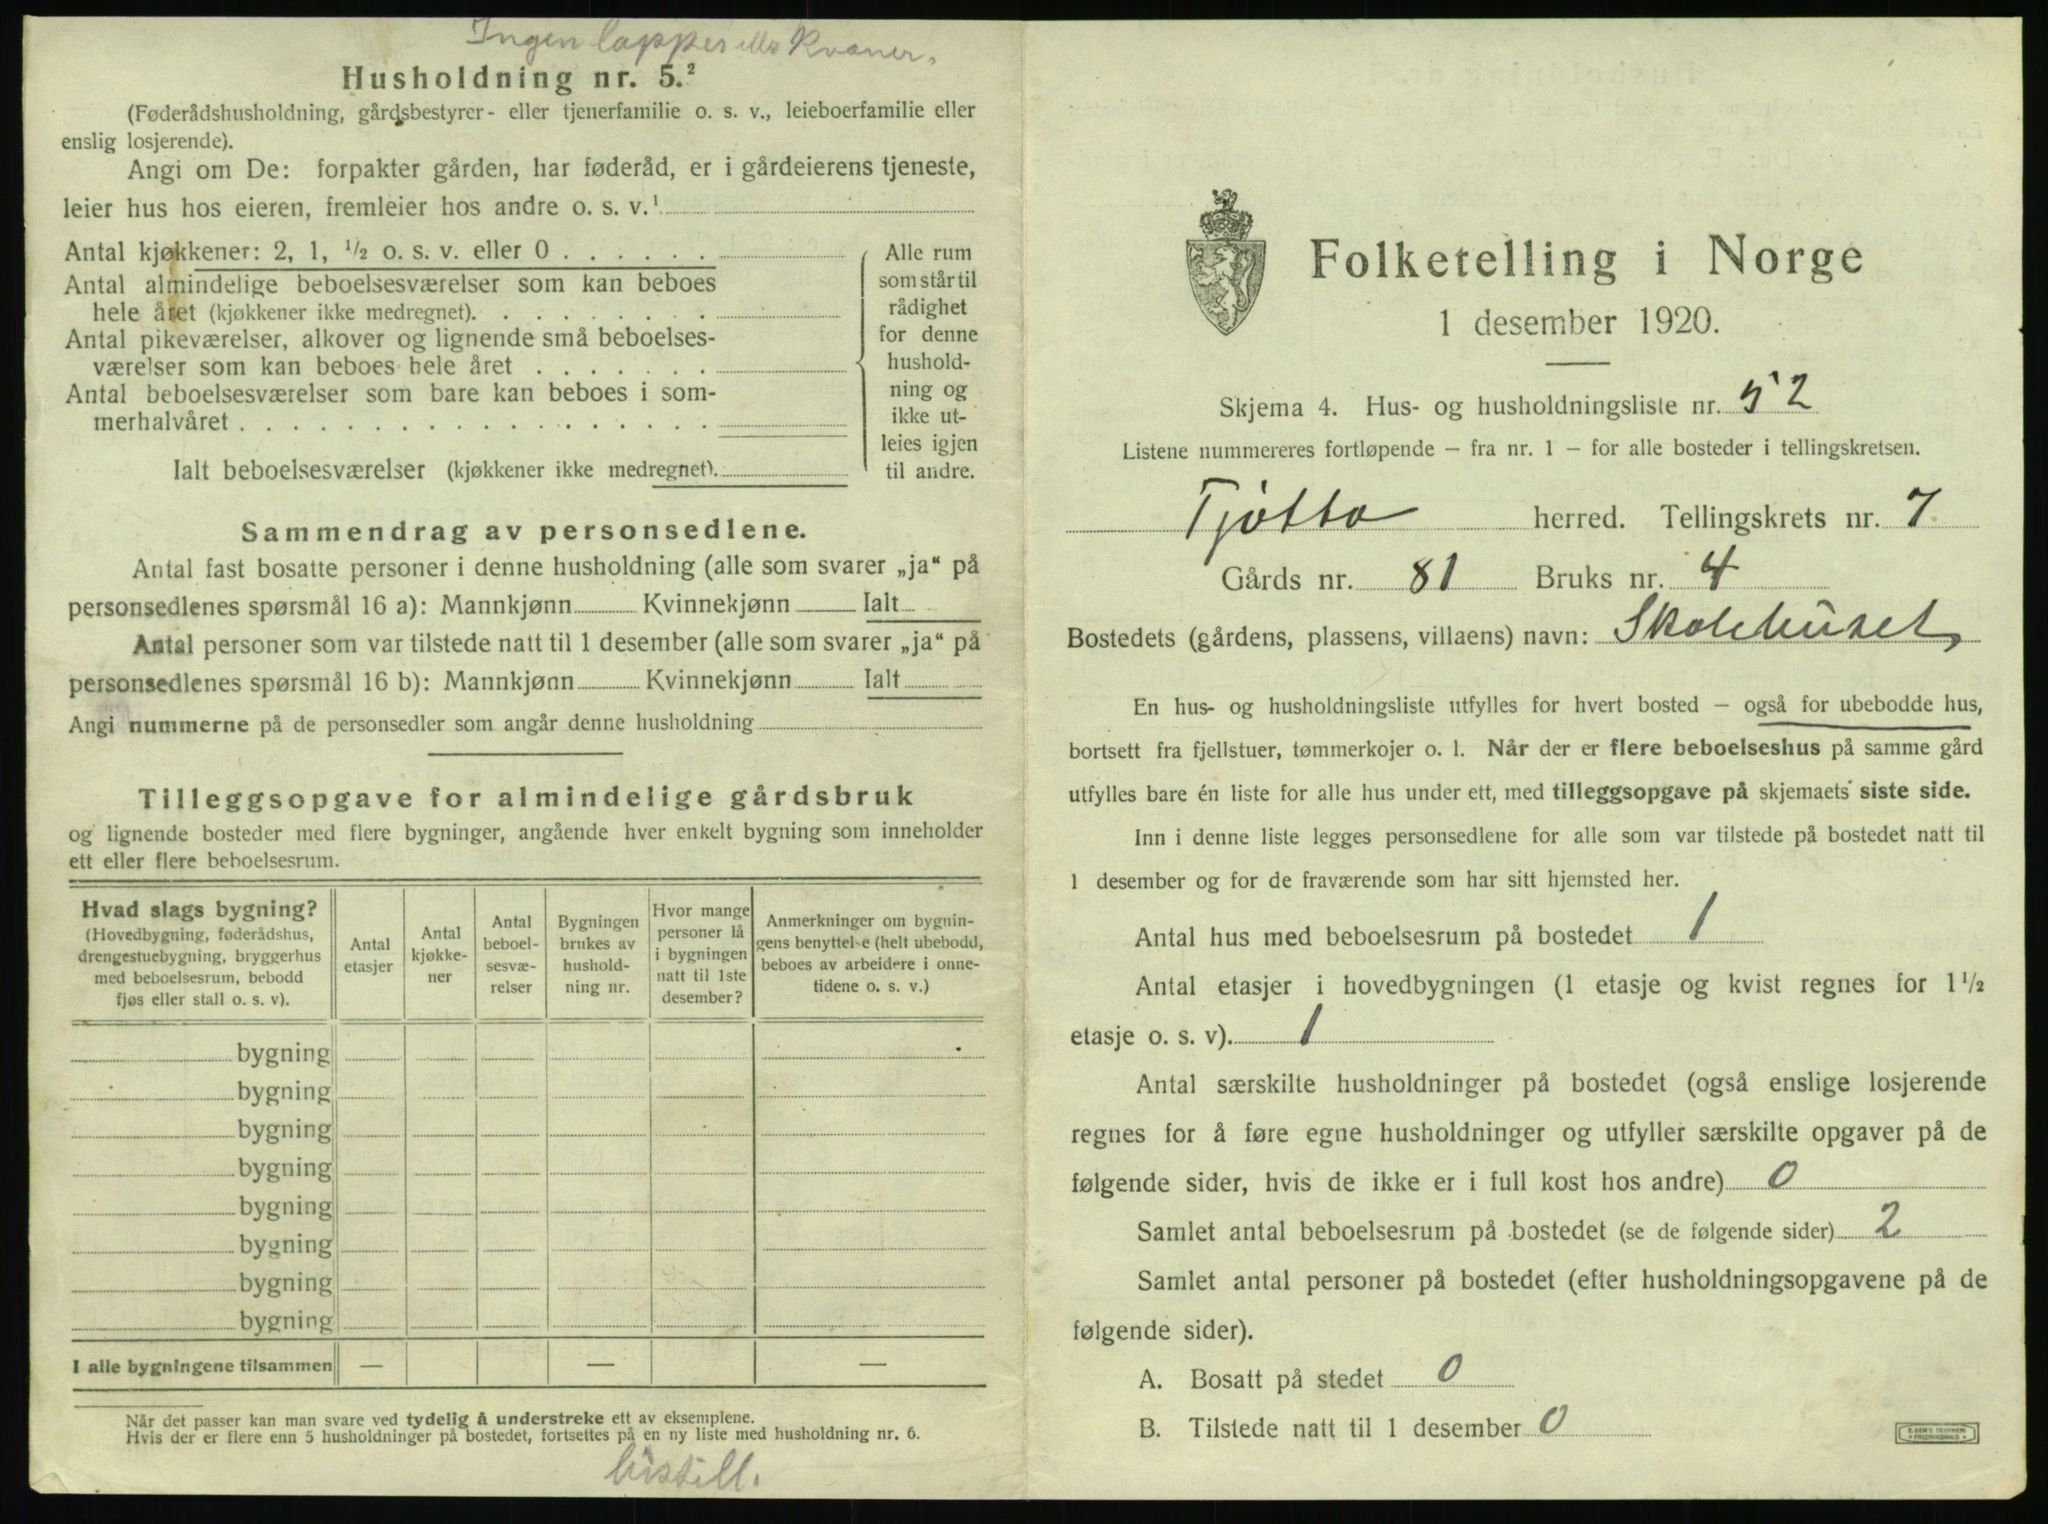 Ingen lapper eller Kvæner.
Husholdning nr. 5.²
(Føderådshusholdning, gårdsbestyrer- eller tjenerfamilie o. s. v., leieboerfamilie eller
enslig losjerende).
Angi om De: forpakter gården, har føderåd, er i gårdeierens tjeneste,
leier hus hos eieren, fremleier hos andre o. s. v.¹
Antal kjøkkener: 2, 1, ½ o. s. v. eller 0 . . . . . .
Antal almindelige beboelsesværelser som kan beboes
hele året (kjøkkener ikke medregnet). . . . . . . . .
Antal pikeværelser, alkover og lignende små beboelses-
værelser som kan beboes hele året . . . . . . .
Antal beboelsesværelser som bare kan beboes i som-
merhalvåret . . . . . . . . . . . . . . . . . .
Ialt beboelsesværelser (kjøkkener ikke medregnet).
Alle rum
som står til
rådighet
for denne
hushold-
ning og
ikke ut-
leies igjen
til andre.
Sammendrag av personsedlene.
Antal fast bosatte personer i denne husholdning (alle som svarer „ja“ på
personsedlenes spørsmål 16 a): Mannkjønn Kvinnekjønn Ialt
Antal personer som var tilstede natt til 1 desember (alle som svarer „ja“ på
personsedlenes spørsmål 16 b): Mannkjønn Kvinnekjønn Ialt
Angi nummerne på de personsedler som angår denne husholdning
Tilleggsopgave for almindelige gårdsbruk
og lignende bosteder med flere bygninger, angående hver enkelt bygning som inneholder
ett eller flere beboelsesrum.
Hvad slags bygning?
(Hovedbygning, føderådshus,
drengestuebygning, bryggerhus
med beboelsesrum, bebodd
fjøs eller stall o. s. v).
Antal
etasjer
Antal
kjøkke-
ner
Antal
beboel-
sesvæ-
relser
Bygningen
brukes av
hushold-
ning nr.
Hvor mange
personer lå
i bygningen
natt til 1ste
desember?
Anmerkninger om bygnin-
gens benyttelse (helt ubebodd,
beboes av arbeidere i onne-
tidene o. s. v.)
bygning
bygning
bygning
bygning
bygning
bygning
bygning
bygning
I alle bygningene tilsammen — — —
Når det passer kan man svare ved tydelig å understreke ett av eksemplene.
Hvis der er flere enn 5 husholdninger på bostedet, fortsettes på en ny liste med husholdning nr. 6.
Folketelling i Norge
1 desember 1920.
Skjema 4. Hus- og husholdningsliste nr. 52
Listene nummereres fortløpende – fra nr. 1 – for alle bosteder i tellingskretsen.
Tjøtta herred. Tellingskrets nr. 7
Gårds nr. 81 Bruks nr. 4
Bostedets (gårdens, plassens, villaens) navn: Skolehuset
En hus- og husholdningsliste utfylles for hvert bosted – også for ubebodde hus,
bortsett fra fjellstuer, tømmerkojer o. l. Når der er flere beboelseshus på samme gård
utfylles bare én liste for alle hus under ett, med tilleggsopgave på skjemaets siste side.
Inn i denne liste legges personsedlene for alle som var tilstede på bostedet natt til
1 desember og for de fraværende som har sitt hjemsted her.
Antal hus med beboelsesrum på bostedet 1
Antal etasjer i hovedbygningen (1 etasje og kvist regnes for 1½
etasje o. s. v). 1
Antal særskilte husholdninger på bostedet (også enslige losjerende
regnes for å føre egne husholdninger og utfyller særskilte opgaver på de
følgende sider, hvis de ikke er i full kost hos andre) 0
Samlet antal beboelsesrum på bostedet (se de følgende sider) 2
Samlet antal personer på bostedet (efter husholdningsopgavene på de
følgende sider).
A. Bosatt på stedet 0
B. Tilstede natt til 1 desember 0